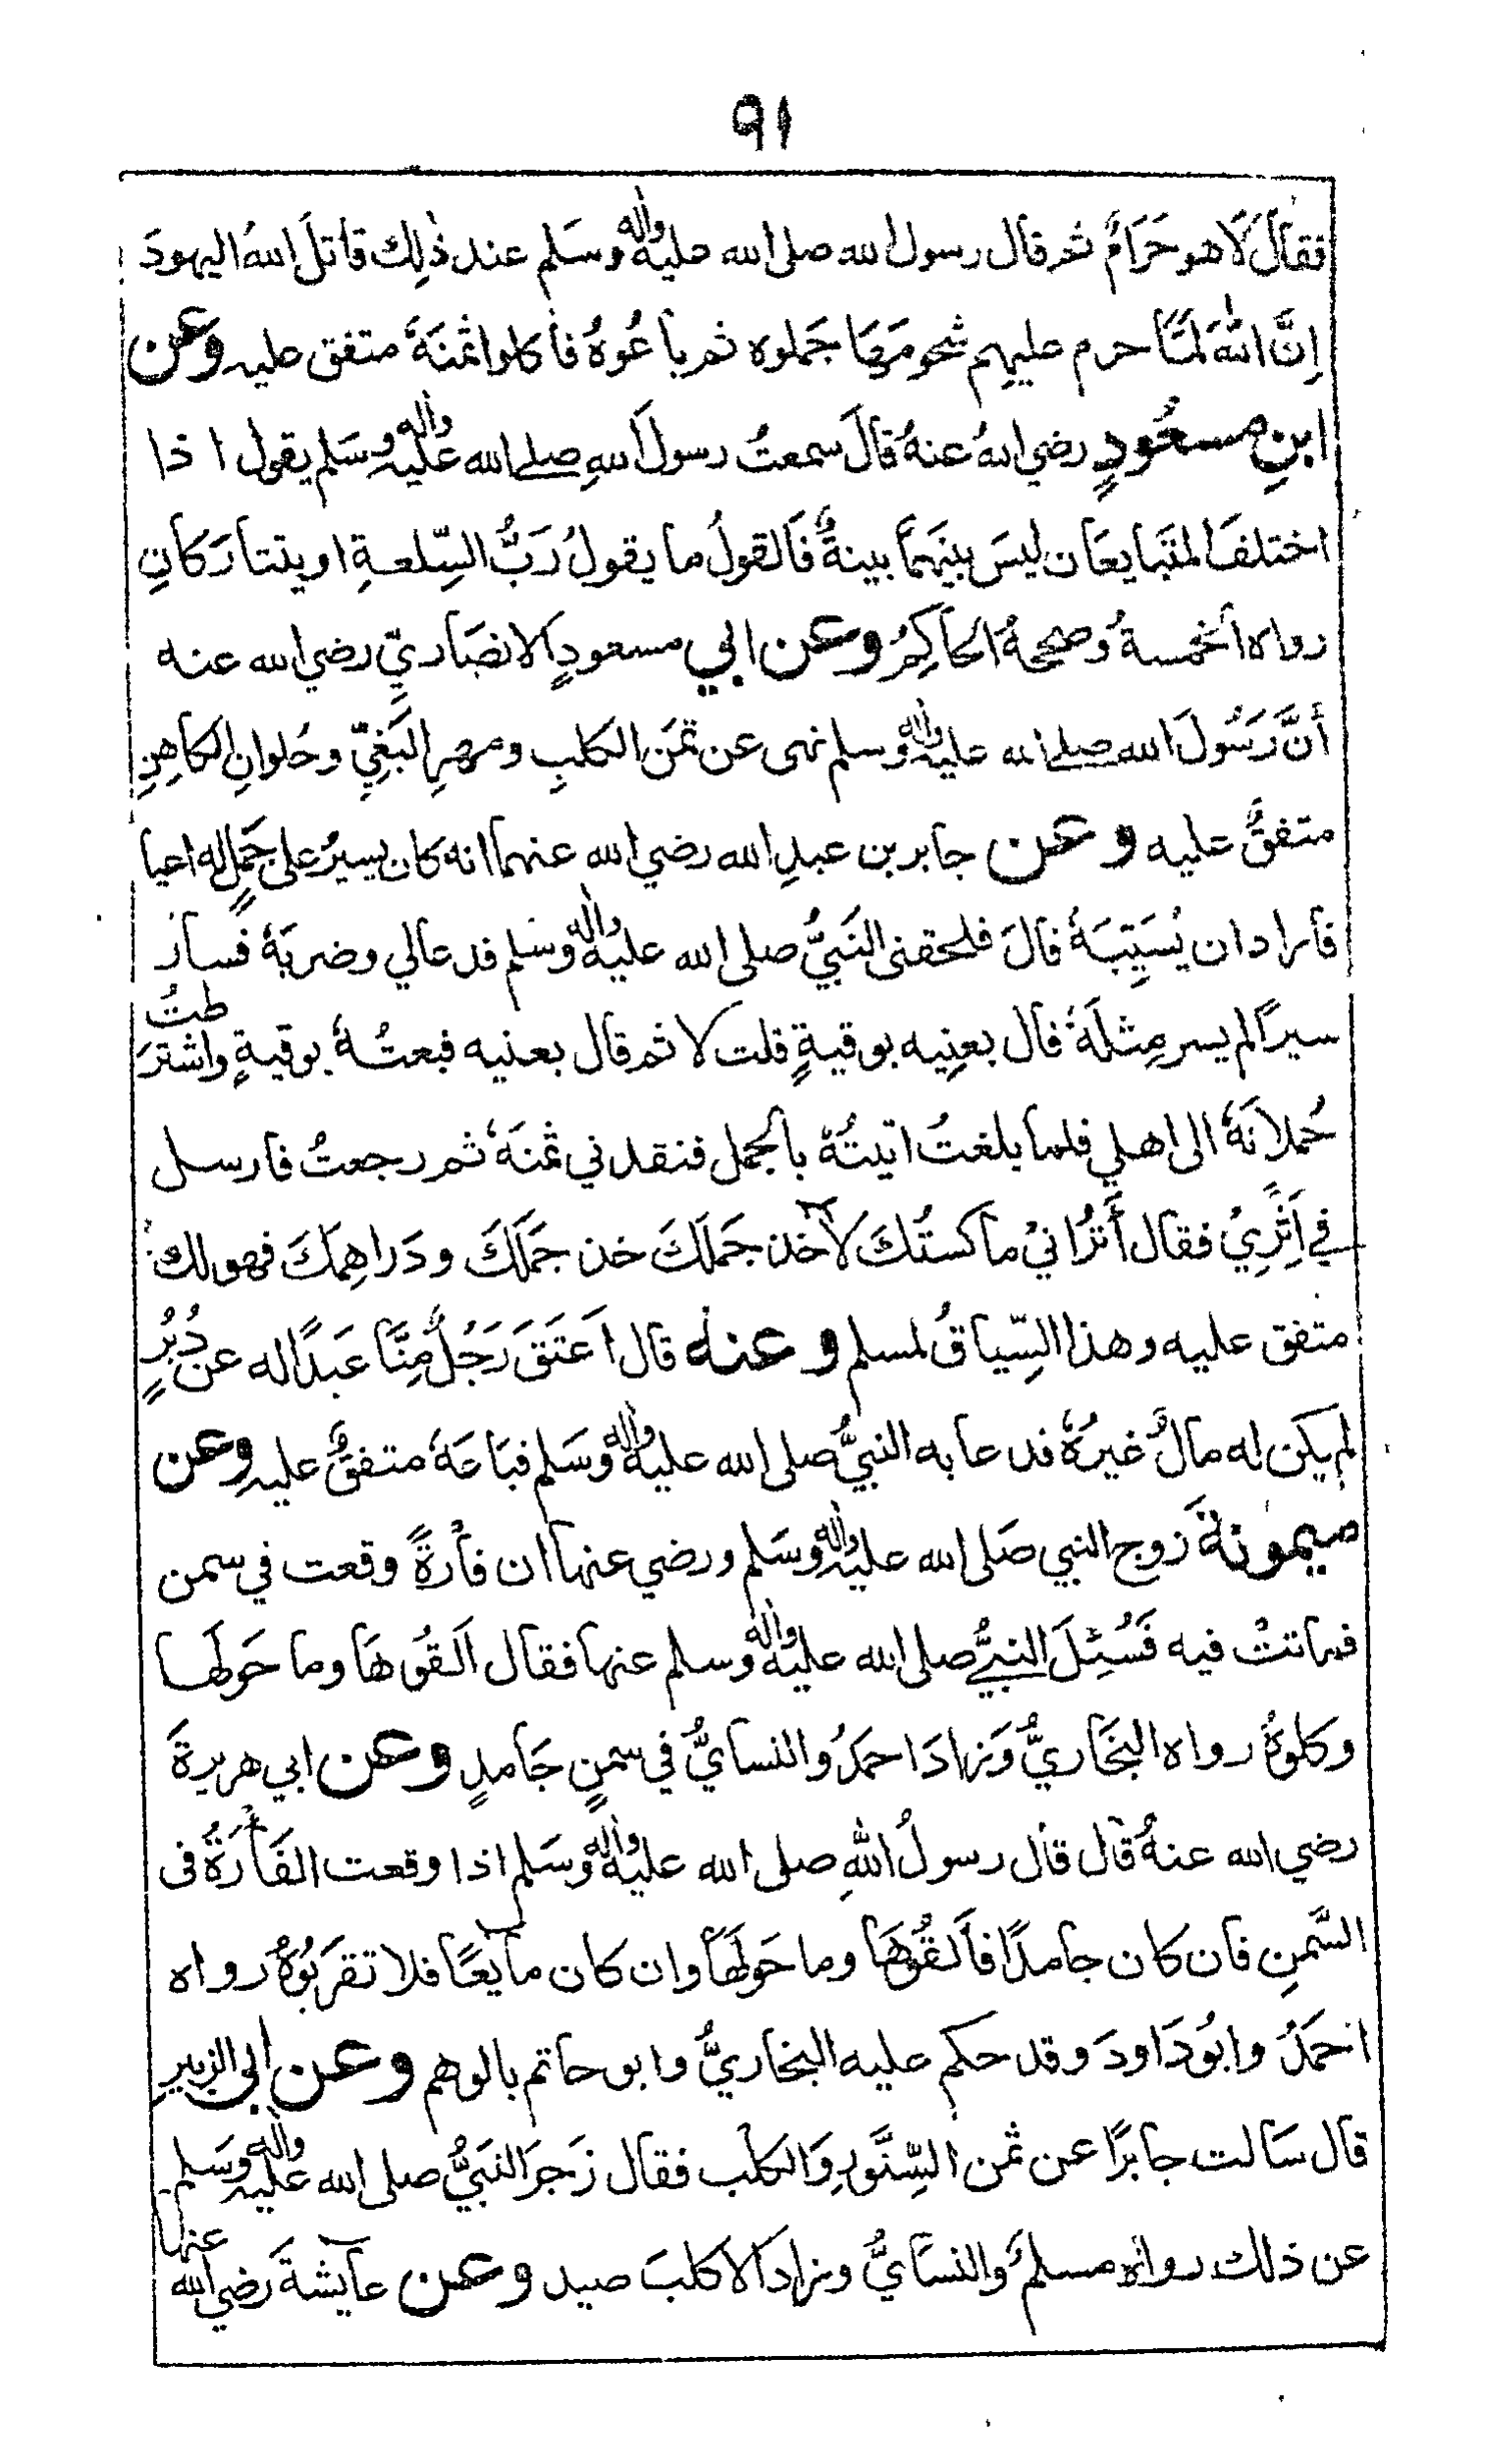 ٩١
فقال لا هو حَرَامٌ ثم قال رسول الله صلى الله عليه واله وسَلم عند ذٰلِك قاتلَ اللهُ اليهودَ
اِنَّ اللهَ لمَّا حرم عليهم شحومَها جَملوه ثم باعُوهُ فأكلوا ثمنَهٗ متفق عليه وعن
ابنِ مسعُودٍ رضي اللهُ عنهُ قالَ سمعتُ رسولَ اللهِ صلى الله عليه واله وسَلم يقول اذا
اختلفَ المتَبايعَان ليسَ بينَهمَا بينةٌ فَالقولُ ما يقولُ رَبُّ السِّلعةِ او يتتارَكَانِ
رواه الخمسةُ وصححهُ الحَاكِمُ وعن ابي مسعودٍ الانصَاريِّ رضي الله عنه
أنَّ رَسُولَ الله صلى الله عليه واله وسلم نهى عن ثمَن الكلبِ ومهرِ البَغِيِّ وحُلوانِ الكاهِنِ
متفقٌ عليه وعن جابر بن عبدِ الله رضي الله عنهما انه كان يسيرُ على جَملٍ له اعيا
فاراد ان يُسَيِّبَهٗ قالَ فلحقنى النَبيُّ صلى الله عليه واله وسَلم فدعا لي وضربَهٗ فسارَ
سيرًا لم يسر مِثلَهٗ قال بعنِيه بوقيةٍ قلت لا ثم قال بعنيه فبعتُهٗ بوقيةٍ واشترَطتُ
حُملانَهٗ الى اهلي فلما بلغتُ اتيتُهٗ بالجمل فنقدني ثمنَهٗ ثم رجعتُ فارسل
في اَثَرِيْ فقال أَتُرَانيْ ماكستُكَ لاٰخذ جَملَكَ خذ جَملَكَ ودَراهِمَكَ فهو لك
متفق عليه وهذا السِّياقُ لمسلم وعنه قال اَعتَقَ رَجُلٌ مِنَّا عَبدًا له عن دُبُرٍ
لم يكن له مالٌ غيرُهٗ فدعا به النبيُّ صلى الله عليه واله وسَلم فبَاعَهٗ متفقٌ عليه وعن
ميمونةَ زوج النبي صَلى الله عليه واله وسَلم ورضي عنها ان فأرةً وقعت في سمن
فماتتْ فيه فَسُئِلَ النبيُّ صلى الله عليه واله وسلم عنها فقال اَلقُوهَا وما حَولَها
وكلوهُ رواه البخَاريُّ وَزادَ احمَدُ والنسايُّ في سمنٍ جَامدٍ وعن ابي هريرةَ
رضي الله عنهُ قال قال رسولُ اللهِ صلى الله عليه واله وسَلم اذا وقعت الفَأرَةُ فى
السَّمنِ فان كان جامدًا فأَلقُوهَا وما حَولَهَا وان كان مايعًا فلا تقرَبُوهُ رواه
احمَدُ وابُو دَاودَ وقد حكم عليه البخاريُّ وابو حاتم بالوهم وعن ابي الزبيرِ
قال سَالت جابرًا عن ثمن السِّنَّورِ وَالكلب فقال زَجرَ النَبيُّ صلى الله عليه واله وسَلم
عن ذلك رواه مسلمٌ والنسَايُّ وزاد الا كلبَ صيد وعن عايشةَ رضي الله عنها